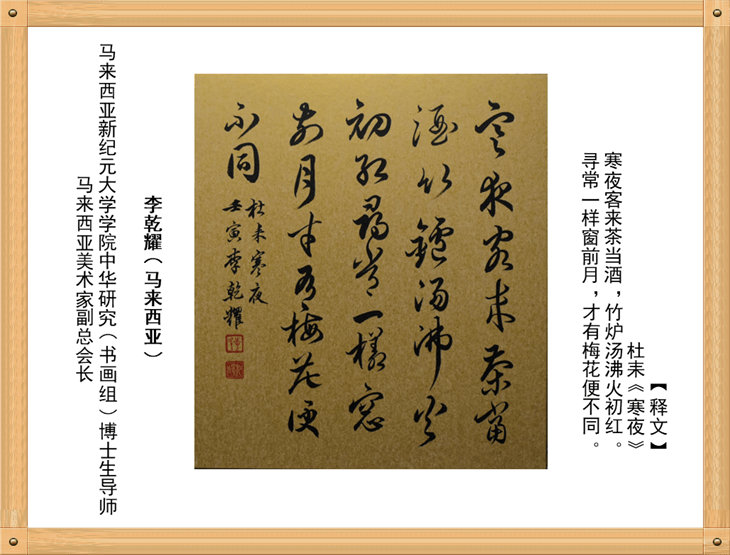 【释文】
杜耒《寒夜》
寒夜客来茶当酒，竹炉汤沸火初红。
寻常一样窗前月，才有梅花便不同。
寒夜客来茶当
酒竹鑪汤沸火
初红寻常一样窗
前月才有梅花便
不同
杜耒寒夜
壬寅李乾耀
李乾耀（马来西亚）
马来西亚新纪元大学学院中华研究（书画组）博士生导师
马来西亚美术家副总会长